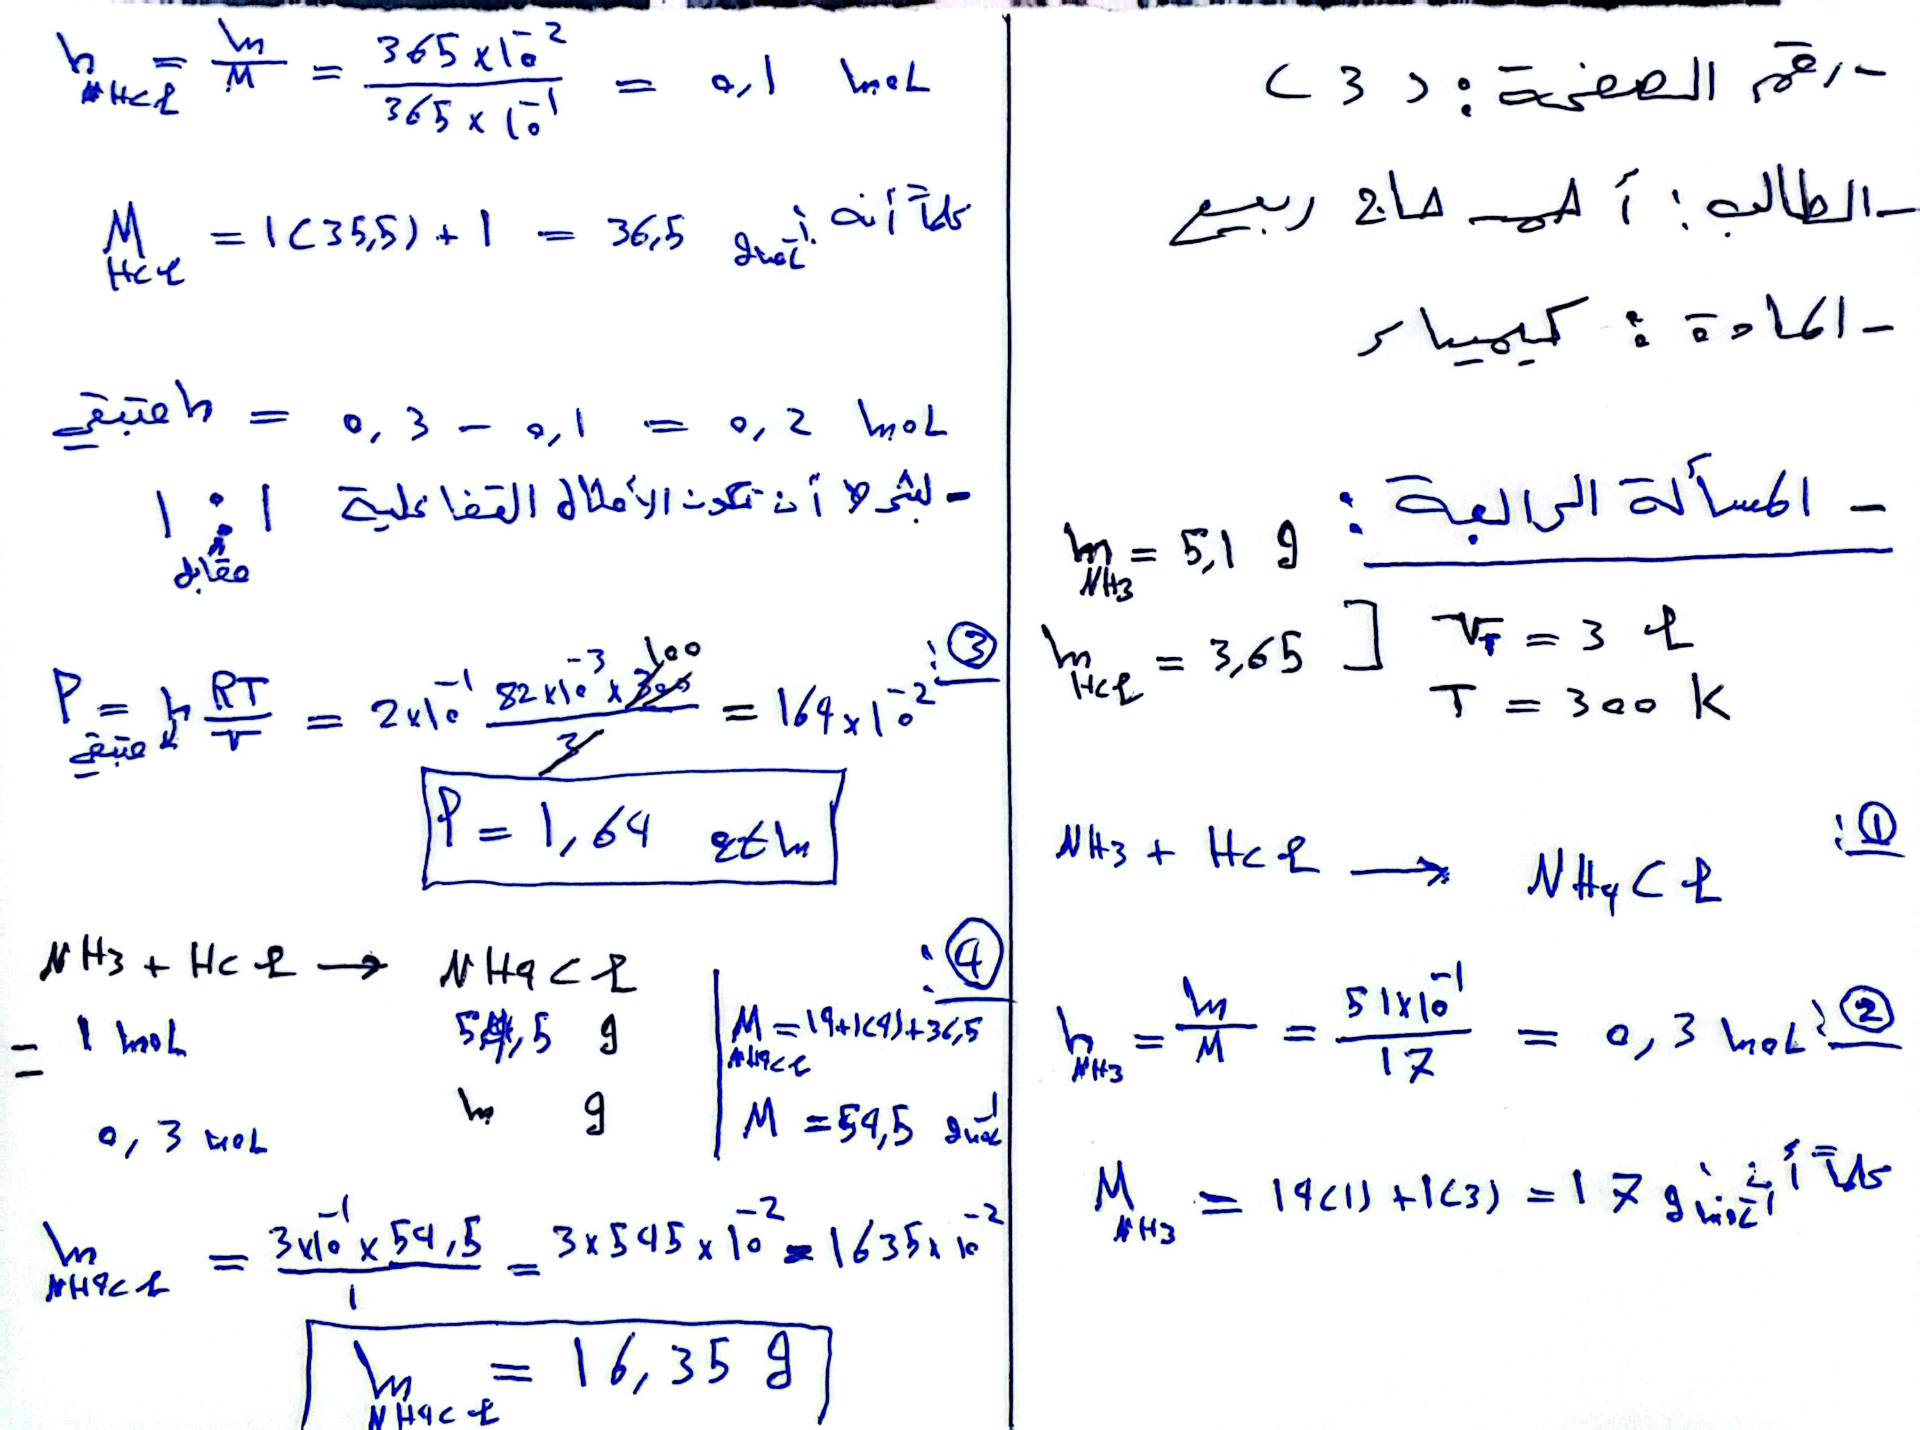 -رقم الصفحة : ( 3 )
-الطالب : أحمد حاج ربيع
-المادة : كيمياء
- المسألة الرابعة :
m NH3 = 5,1 g
m HCl = 3,65 ] VT = 3 l
T = 300 K
① :
NH3 + HCl → NH4Cl
② :
n NH3 = m/M = 51x10^-1 / 17 = 0,3 moL
M NH3 = 14(1) + 1(3) = 17 g.moL^-1 كما أن
n HCl = m/M = 365x10^-2 / 365x10^-1 = 0,1 moL
M HCl = 1(35,5) + 1 = 36,5 g.moL^-1 كما أنه
n متبقي = 0,3 - 0,1 = 0,2 moL
- بشرط أن تكون الأمثال التفاعلية 1 : 1
مقابل
③ :
P متبقي = n RT/V = 2x10^-1 82x10^-3 x 300 / 3 = 164x10^-2
100
P = 1,64 atm
④ :
NH3 + HCl → NH4Cl
= 1 moL 54,5 g
0,3 moL m g
M NH4Cl = 14+1(4)+36,5
M = 54,5 g.moL^-1
m NH4Cl = 3x10^-1 x 54,5 / 1 = 3x545x10^-2 = 1635x10^-2
m NH4Cl = 16,35 g